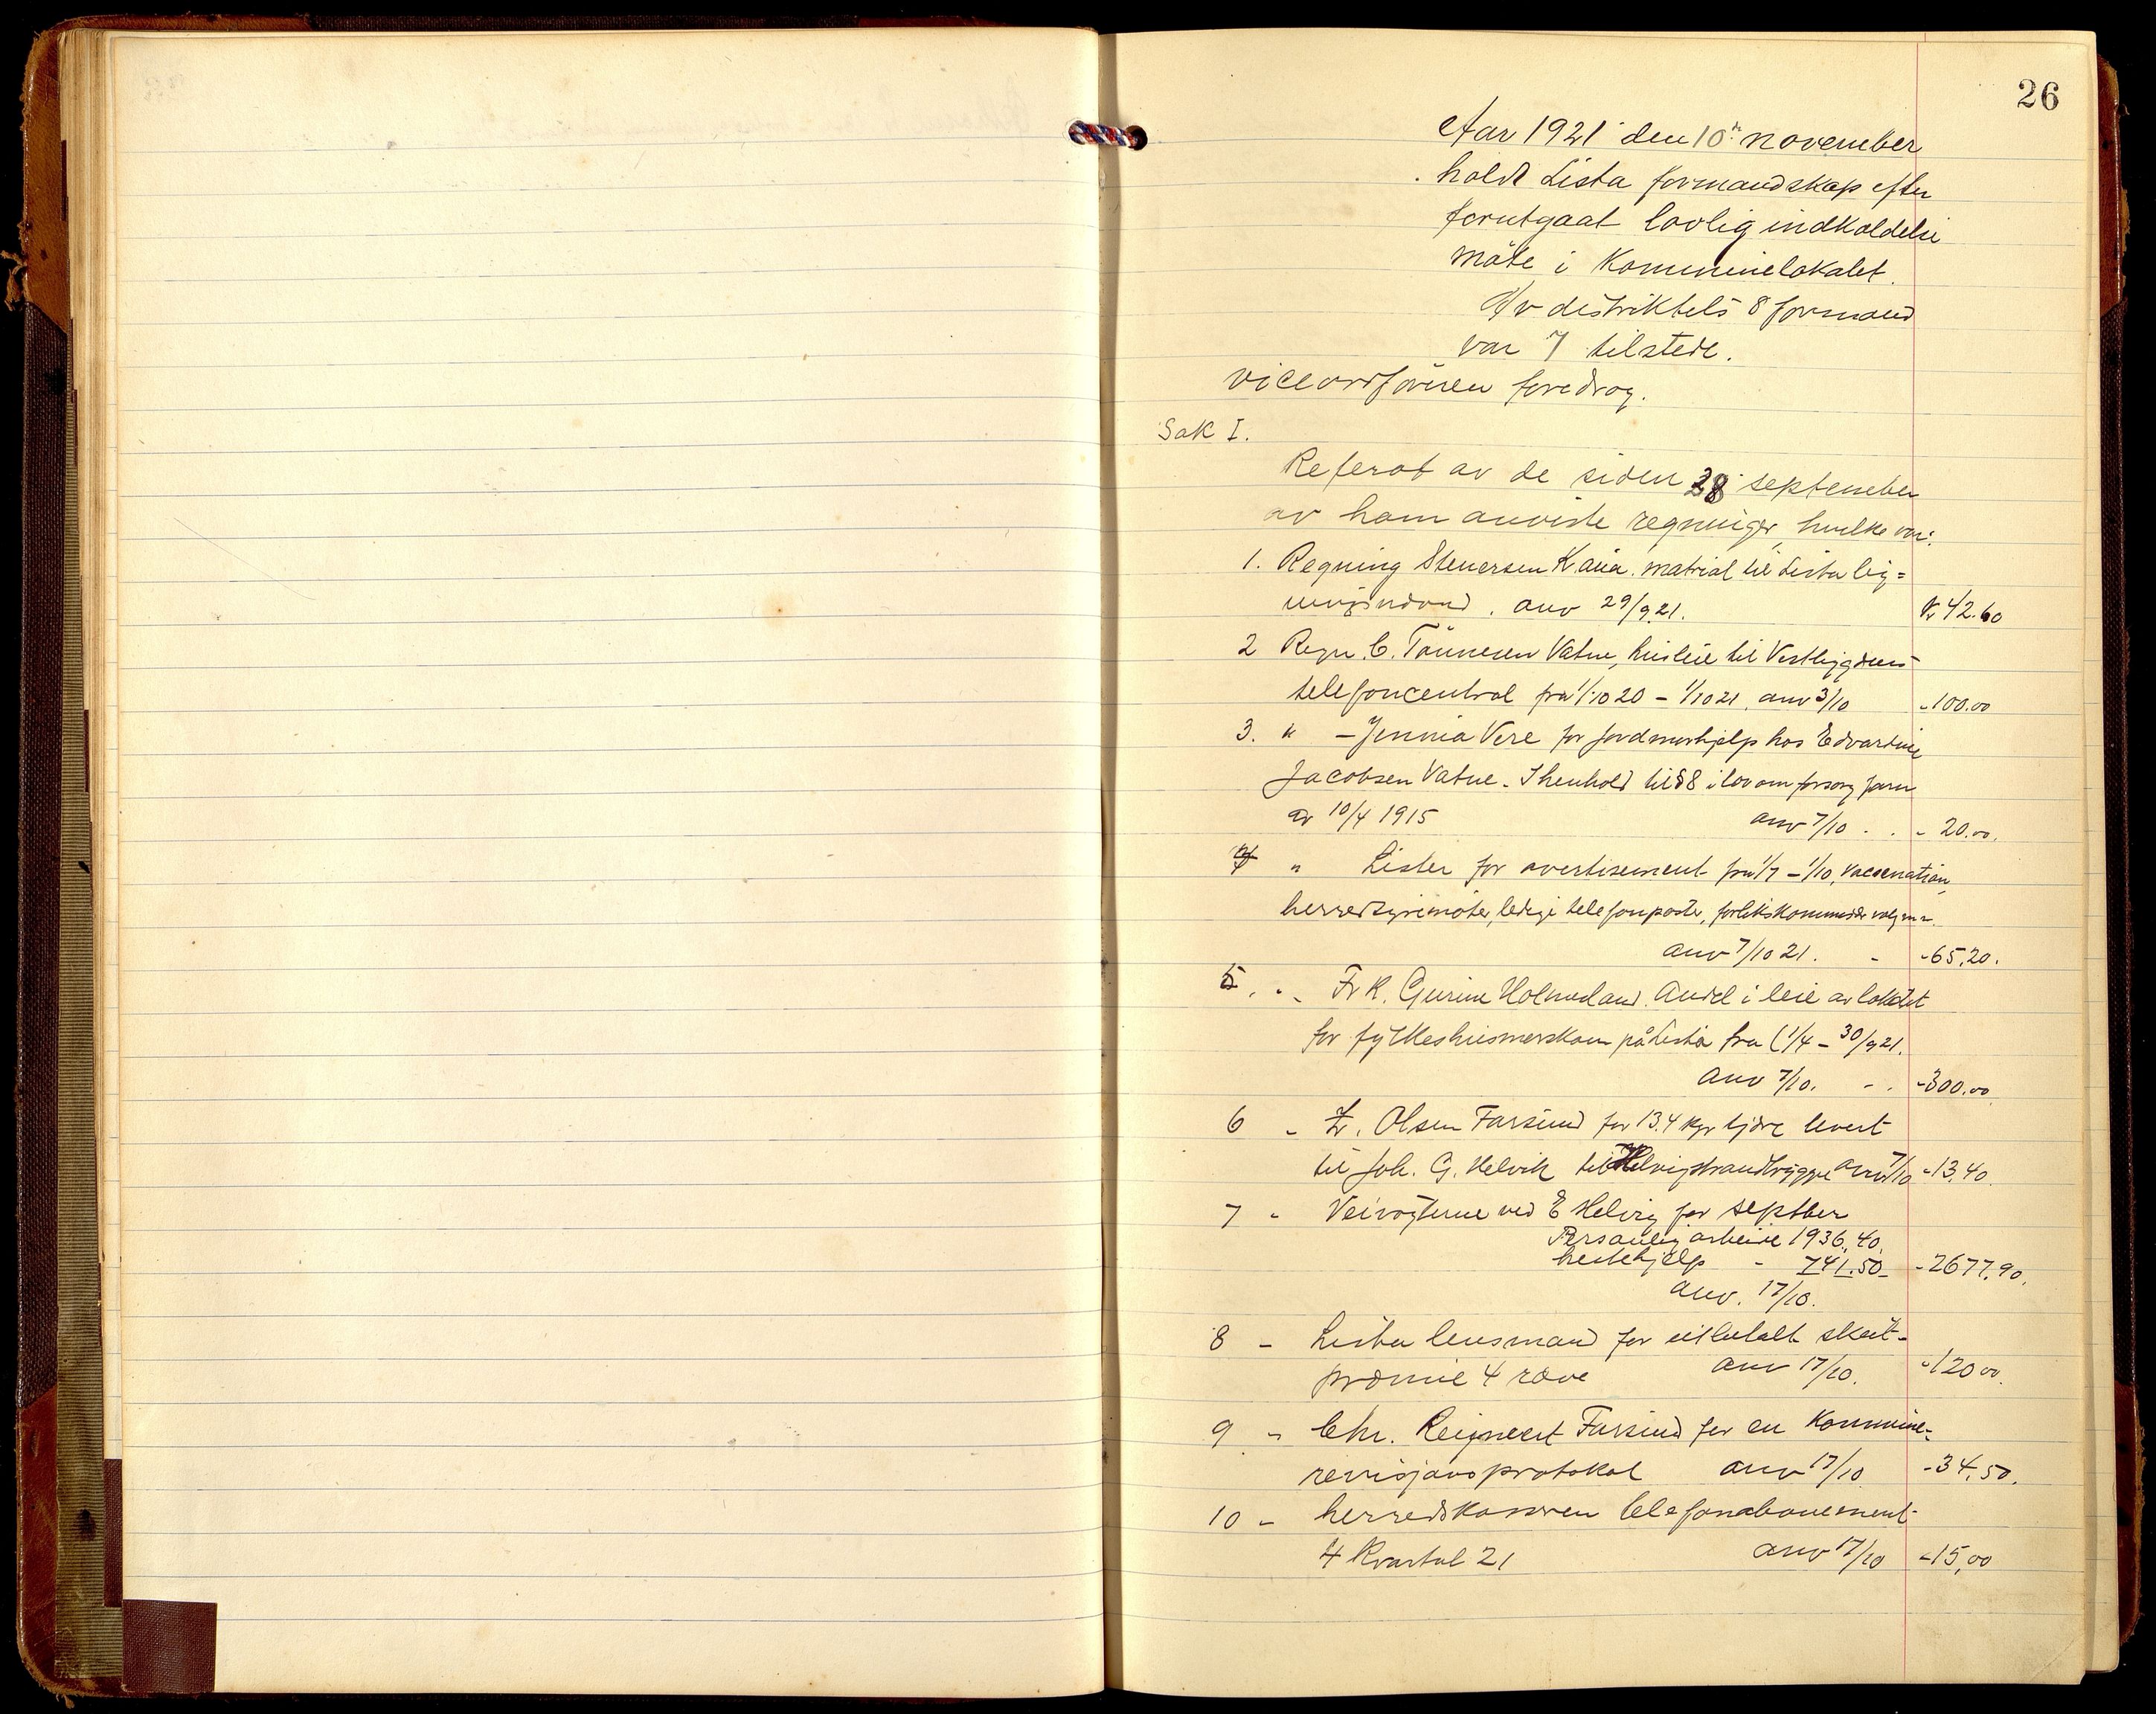 26
Aar 1921 den 10de november
holdt Lista formandskap efter
forutgaat lovlig indkaldelse
møte i Kommunelokalet.
Av distriktets 8 formænd
var 7 tilstede.
viceordføreren foredrog.
Sak I.
Referat av de siden 28 september
av ham anviste regninger, hvilke var:
1. Regning Stenersen Kania. matrial til Lista lig=
anv 29/9 21. Kr 42.60
2 Regn. C. Tønnesen Vatne, husleie til Vestbygdens
telefoncentral fra 1/10 20 - 1/10 21. anv 3/10 - 100.00
3. " - Jennia Vere for jordmorhjelp hos Edvardine
Jacobsen Vatne. I henhold til § 8 i lov om forsorg for
av 10/4 1915 anv 7/10 . . - 20.00.
4 " Lister for avertisement fra 1/7 - 1/10, vaccination,
herredsyremøter, ledige telefonposter, forlikskommissær valg m.m.
anv 7/10 21. - - 65.20.
5. " Frk. Gurine Holmeland. Andel i leie av lokalet
for fylkeshusmorskolen på Lista fra (1/4 - 30/9 21.
anv 7/10. - . - 300.00
6 - Olsen Farsund for 13.4 kgr tjære levert
til Joh. G. Helvik til Helvigstrandbrygge anv 7/10 - 13.40.
7 - Veivogterne ved E Helvig for septber
Personlig arbeide 1936.40.
hestehjelp - 741.50 - 2677.90.
anv. 17/10.
8 - Lista lensmand for utbetalt skut-
præmie 4 ræve anv 17/10. - 120 00.
9 - Chr. Reignert Farsund for en Kommune-
revisjonsprotokol anv 17/10 - 34.50.
10 - herredskasseren telefonabonement
4 Kvartal 21 anv 17/10 - 15,00